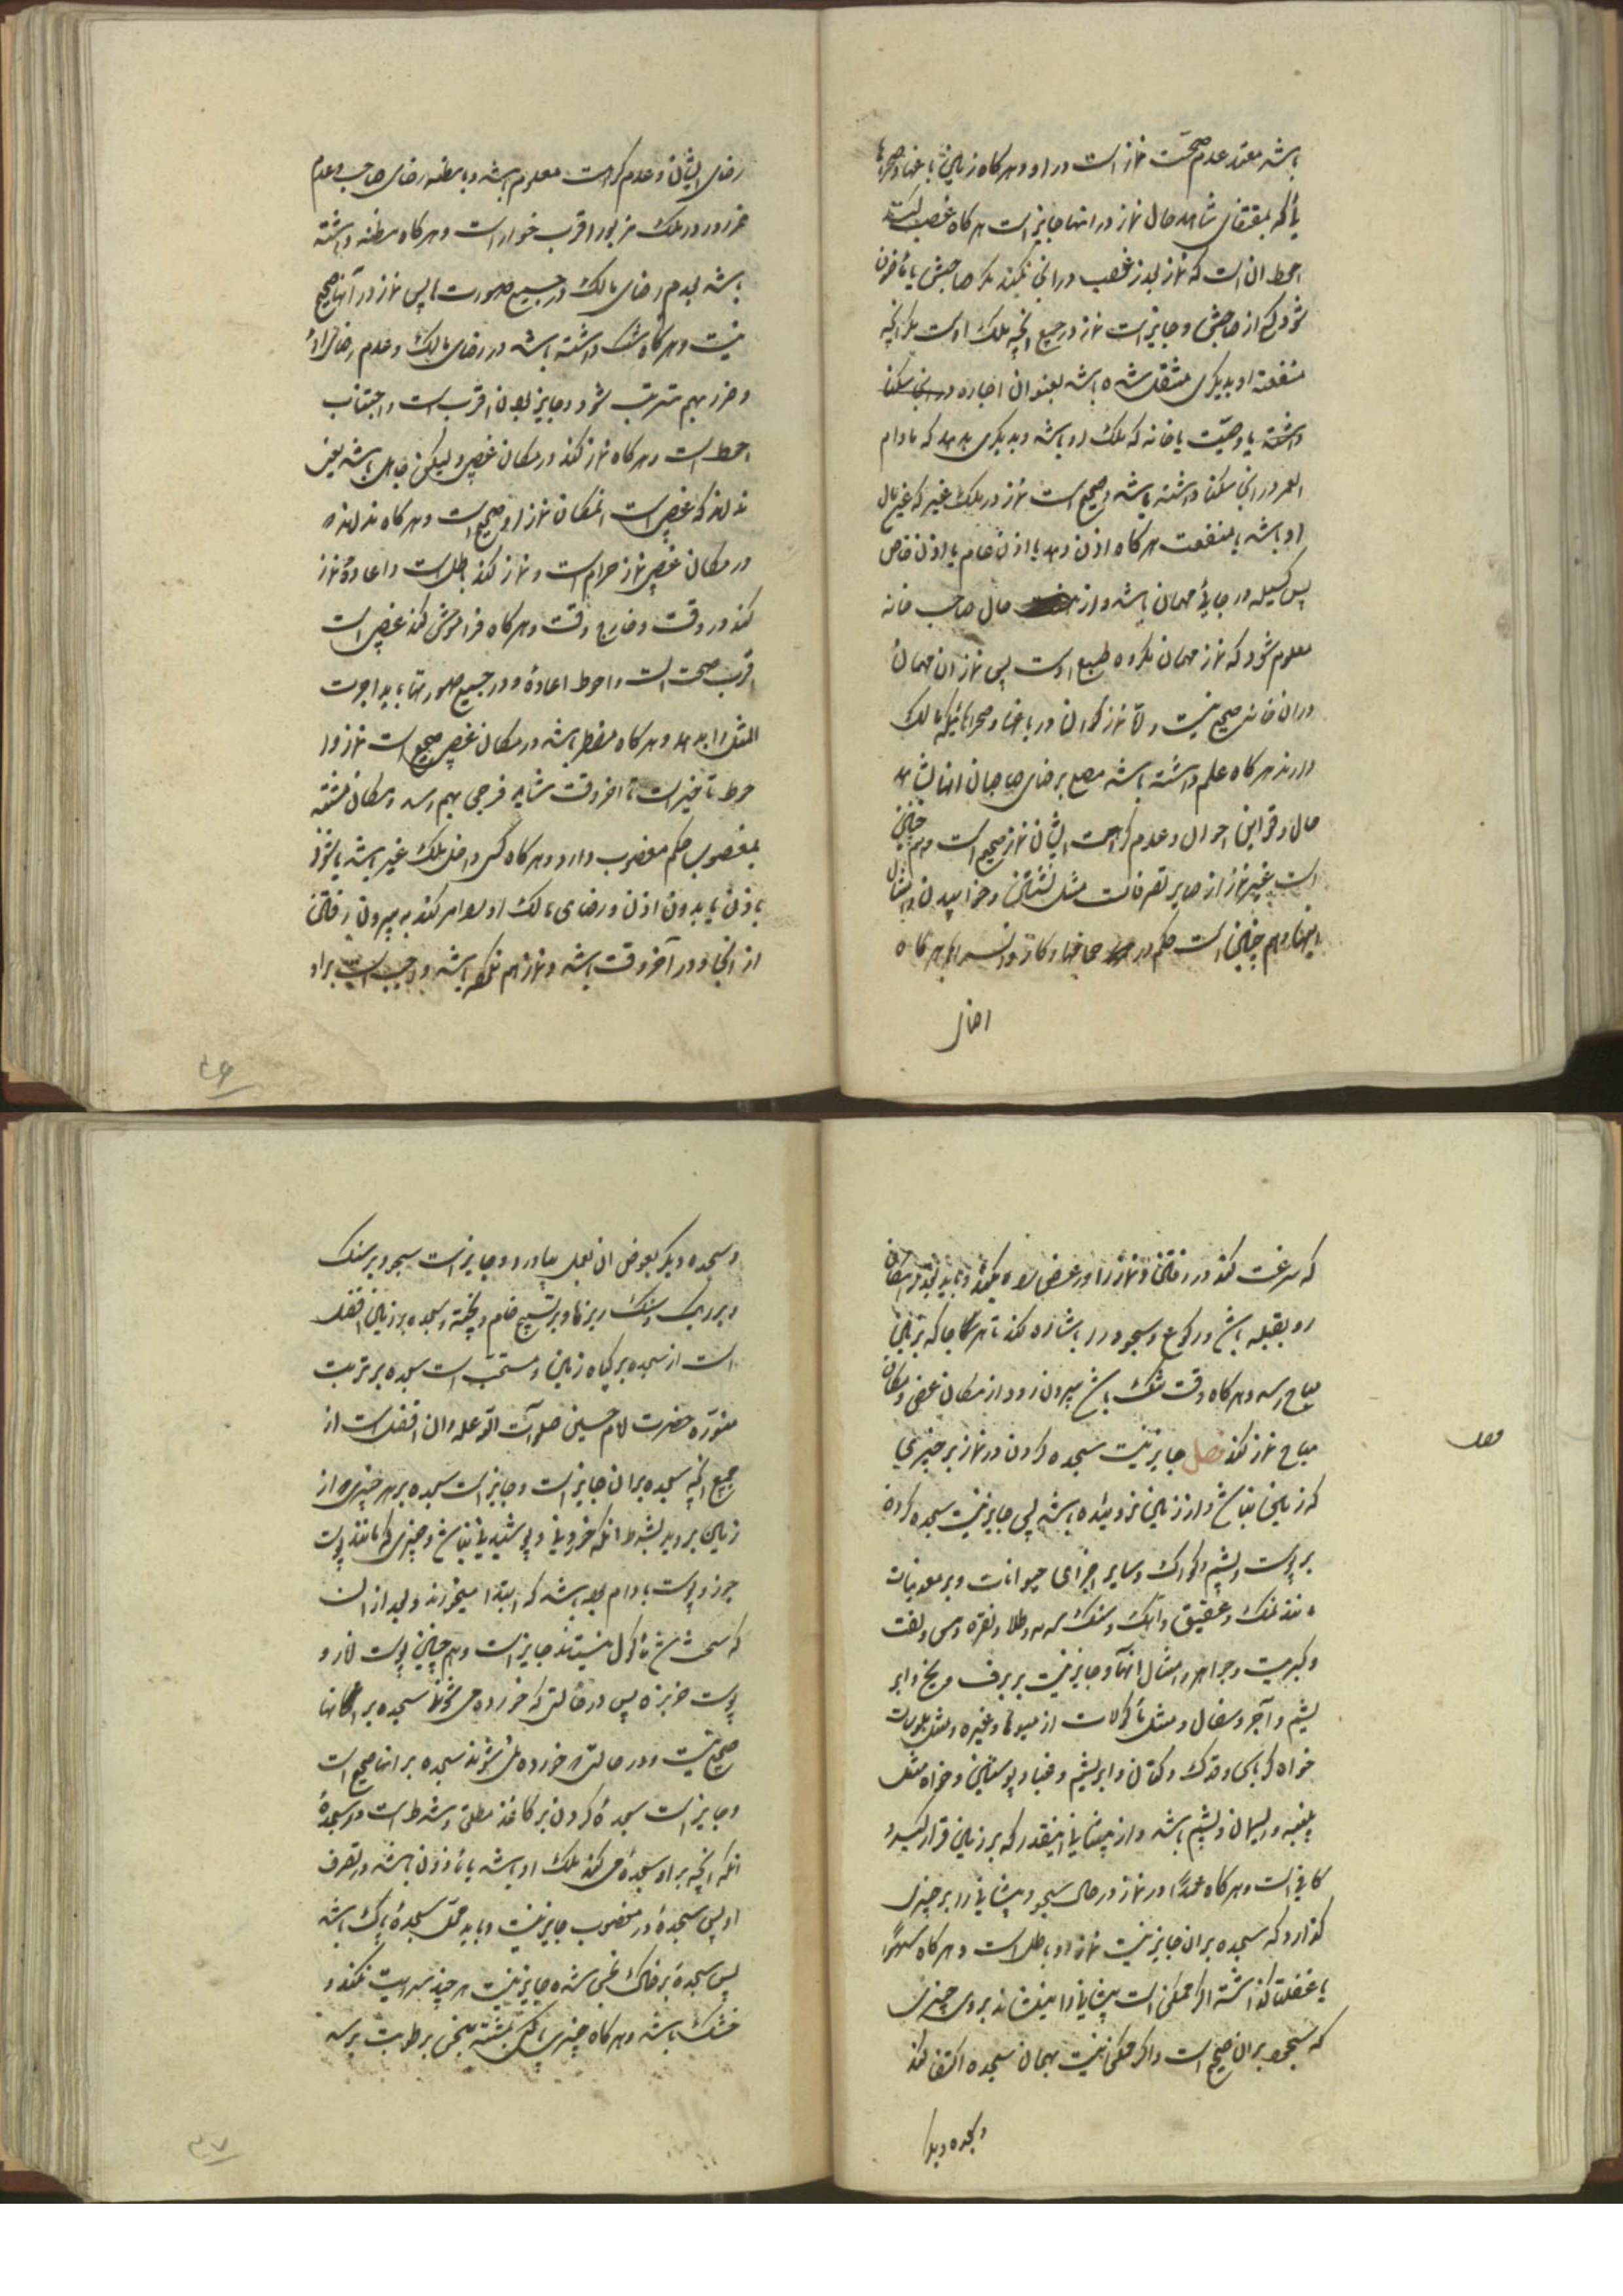 باشد معتمد عدم صحّت نماز است در او و هر كاه زمين باغها و صحراها
يا كه بمقتضاى شاهد حال نماز در انها جايز است هر كاه غصب كنند
احوط ان است كه نماز بعد از غصب در ان نكند مكر صاحبش يا مأذون
شود كه از صاحبش و جايز است نماز در جميع انچه ملك اوست مكر انچه
منفعت او بديكرى منتقل شده باشد بعنوان اجاره در ان سكنا
داشته يا وصيّت يا خانه كه ملك او باشد و بديكرى بدهد كه مادام
العمر در ان سكنا داشته باشد و صحيح است نماز در ملك غير كه عين مال
او باشد يا منفعت هر كاه اذن دهد يا اذن عام يا اذن خاص
پس كسيكه در جائى مهمان باشد و از حال صاحب خانه
معلوم شود كه نماز مهمان مكروه طبع اوست پس نماز ان مهمان
در ان خانه صحيح نيست و امّا نماز كردن در باغها و صحراهائيكه مالك
دارند هر كاه علم داشته باشد مصلى برضاى صاحبان انها بشاهد
حال و قراين احوال و عدم كراهت ايشان نماز صحيح است و هم چنين
است غير نماز از ساير تصرفات مثل نشستن و خوابيدن و امثال
اينها و هم چنين است حكم در حمامها و كاروانسراها هر كاه
رضاى
رضاى ايشان و عدم كراهت معلوم باشد و با مظنه رضاى صاحب و عدم
ضرر در ملك مزبور اقرب جواز است و هر كاه مظنه داشته
باشد بعدم رضاى مالك در جميع صورتها پس نماز در آنها صحيح
نيست و هر كاه شك داشته باشد در رضاى مالك و عدم رضاى او
و ضرر بهم مترتب شود و جايز بودن اقرب است و اجتناب
احوط است و هر كاه نماز كند در مكان غصبى و ليكن جاهل باشد يعنى
نداند كه غصبى است انمكان نماز او صحيح است و هر كاه نداند كه
در مكان غصبى نماز حرام است و نماز كند باطل است و اعادهٔ نماز
كند در وقت و خارج وقت و هر كاه فراموش كند غصبى است
اقرب صحت است و احوط اعاده و در جميع صورتها بايد اجرت
المثل را بدهد و هر كاه مضطر باشد در مكان غصبى صحيح است نماز و ا
حوط تأخير است تا اخر وقت شايد فرجى بهم رسد و مكان مشتبه
بمغصوب حكم مغصوب دارد و هر كاه كسى داخل ملك غير باشد يا شود
با ذن يا بدون اذن و رضاى مالك او را امر كند به بيرون رفتن
از انجا و در آخر وقت باشد و نماز هم نكرده باشد واجب است بر او
٤٦
كه سرعت كند در رفتن و نماز را در عرض راه بكند و بايد بقدر امكان
رو بقبله باشد و ركوع و سجود را باشاره كند تا هر كا جا كه بزمين
مباح رسد و هر كاه وقت تنك نباشد بيرون رود از مكان غصبى و در مكان
مباح نماز كند فصل جايز نيست سجده كردن در نماز بر چيزى
فصل
كه زمين نباشد و از زمين نروئيده باشد پس جايز نيست سجده كردن
بر پوست و پشم و كرك و ساير اجزاى حيوانات و بر معدنيات
مانند نمك و عقيق و آهك و سنك سرمه و طلا و نقره و مس و نفت
و كبريت و جواهر و امثال انها و جايز نيست بر برف و يخ و ابر
يشم و آجر و سفال و مثل مأكولات از ميوها و غيره و مثل ملبوسات
خواه كرباس و قدك و كتان و ابريشم و قبا و پوستين و خواه مثل
پنبه و ريسمان و پشم باشد و از پيشانى اينقدر كه بر زمين قرار كيرد
كافى است و هر كاه عمدًا در نماز در حال سجود پيشانى را بر چيزى
كذارد كه سجده بران جايز نيست نماز او باطل است و هر كاه سهوًا
يا غفلت كذاشته اكر ممكن است پيشانى را بكشاند بروى چيزى
كه سجود بران صحيح است و اكر ممكن نيست بهمان سجده اكتفا كند
و سجده ديكر
و سجده ديكر بعوض ان بعمل بياورد و جايز است سجود بر سنك
و بر ريك و سنك ريزها و بر تسبيح خام و پخته و سجده بر زمين افضل
است از سجده بر كياه زمين و مستحب است سجده بر تربت
منوّره حضرت امام حسين صلوات الله عليه و ان افضل است از
جميع انچه سجده بران جايز است و جايز است سجده بر هر چيزى كه از
زمين برويد بشرط انكه خوردنى و پوشيدنى نباشد و چيزى كه مانند پوست
جوز و پوست بادام بوده باشد كه ابتدا ميخورند و بعد از ان
كه سخت شد مأكول نيستند جايز است و هم چنين پوست انار و
پوست خربزه پس در حالتى كه خورده مى شوند سجده بر انها
صحيح نيست و در حالتى كه خورده نمى شوند سجده بر انها صحيح است
و جايز است سجدهٔ كردن بر كاغذ مطلق و شرط است در سجدهٔ
انكه انچه بر او سجدهٔ مى كند ملك او باشد يا مأذون باشد در تصرف
او پس سجدهٔ در مغصوب جايز نيست و بايد محلّ سجدهٔ پاك باشد
پس سجدهٔ بر خاك نجس شده جايز نيست هر چند سرايت نكند و
خشك باشد و هر كاه چيزى پاكى مشتبه بنجس برطوبت برسد
٤٧